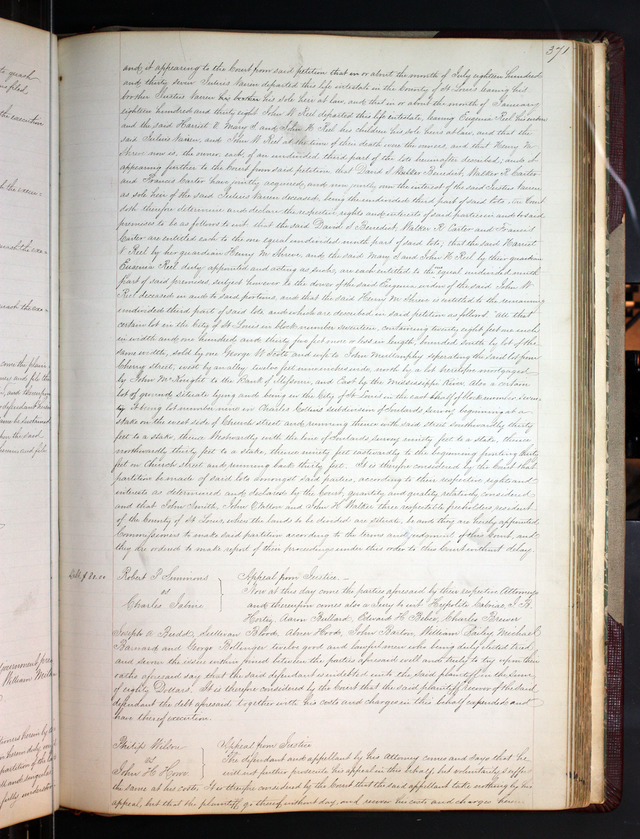 371
and, it appearing to the Court from said petition that in or about the month of July eighteen hundred
and thirty seven Julius Varien departed this life intestate in the County of St Louis leaving his
brother Justus Varien his sole heir at law, and that in or about the month of January
eighteen hundred and thirty eight John W Reel departed this life intestate, leaving Eugenia Reel his widow
and the said Harriet V. Mary and John W Reel his children his sole heirs at law, and that the
said Julius Varien and John W Reel at the time of their death were the owners, and that Henry M
Shreve now is the owner, each of an undivided third part of the lots hereinafter described, and it
appearing further to the Court from said petition that David S Benedict, Walker R Carter
and Francis Carter have jointly acquired, and now jointly own the interest of the said Justus Varien
as sole heir of the said Julius Varien deceased, being the undivided third part of said lots the Court
doth therefore determine and declare the respective rights and interests of said parties in and to said
premises to be as follows to wit: that the said David S Benedict, Walker R Carter and Francis
Carter are entitled each to the one equal undivided ninth part of said lots; that the said Harriet
V Reel by her guardian Henry M Shreve, and the said Mary and John W Reel by their guardian
Eugenia Reel duly appointed and acting as such, are each entitled to the one equal undivided ninth
part of said premises, subject however to the dower of the said Eugenia widow of the said John W
Reel deceased in and to said portions, and that the said Henry M Shreve is entitled to the remaining
undivided third part of said lots and which are described in said petition as follows "All that
certain lot in the City of St Louis in block number seventeen, containing twenty eight feet six inches
in width and one hundred and thirty five feet more or less in length, bounded South by lot of the
same width, sold by one George W Scott and wife to John Mullanphy separating the said lot from
Cherry street, west by an alley twelve feet inches wide, north by a lot heretofore mortgaged
by John McKnight to the Bank of Missouri, and East by the Mississippi River. Also a certain
lot of ground situate lying and being in the City of St Louis in the east half of block number
being lot number nine in Charles Collins subdivision of Survey beginning at a
stake on the west side of Church street and running thence with said street southwardly thirty
feet to a stake, thence westwardly with the line of survey ninety feet to a stake, thence
northwardly thirty feet to a stake, thence ninety feet eastwardly to the beginning fronting thirty
feet on Church street and running back thirty feet. It is therefore considered by the Court that
partition be made of said lots amongst said parties, according to their respective rights and
interests as determined and declared by the Court, quantity and quality relatively considered
and that John Smith, John O'Fallon and John H Walker three respectable freeholders resident
of the County of St Louis, where the lands to be divided are situate, be and they are hereby appointed,
Commissioners to make said partition according to the terms and judgment of this Court, and
they are ordered to make report of their proceedings under this order to this Court without delay
Debt $80.00
Robert P Simmons
vs
Charles Sabine
Appeal from Justice —
Now at this day come the parties aforesaid by their respective Attorneys
and thereupon comes also a Jury to wit Hyppolite J B
Hortez, Aaron Bullard, Edward H Beebe, Charles Brewer
Joseph A Budd, Sullivan Blood, Abner Hood, John Barlow, William Bailey Michael
Barnard and George Bollinger twelve good and lawful men who being duly elected tried
and sworn the issue within joined between the parties aforesaid well and truly to try upon their
oaths aforesaid say that the said defendant is indebted unto the said plaintiff in the sum
of eighty Dollars. It is therefore considered by the Court that the said plaintiff recover of the said
defendant the debt aforesaid together with his costs and charges in this behalf expended and
have thereof execution
Philip Wilson
vs
John H Howe
Appeal from Justice
The defendant and appellant by his Attorney comes and says that he
will not further prosecute his appeal in this behalf, but voluntarily suffers
the same at his costs. It is therefore considered by the Court that the said appellant take nothing by his
appeal, but that the plaintiff go thereof without day, and recover his costs and charges herein